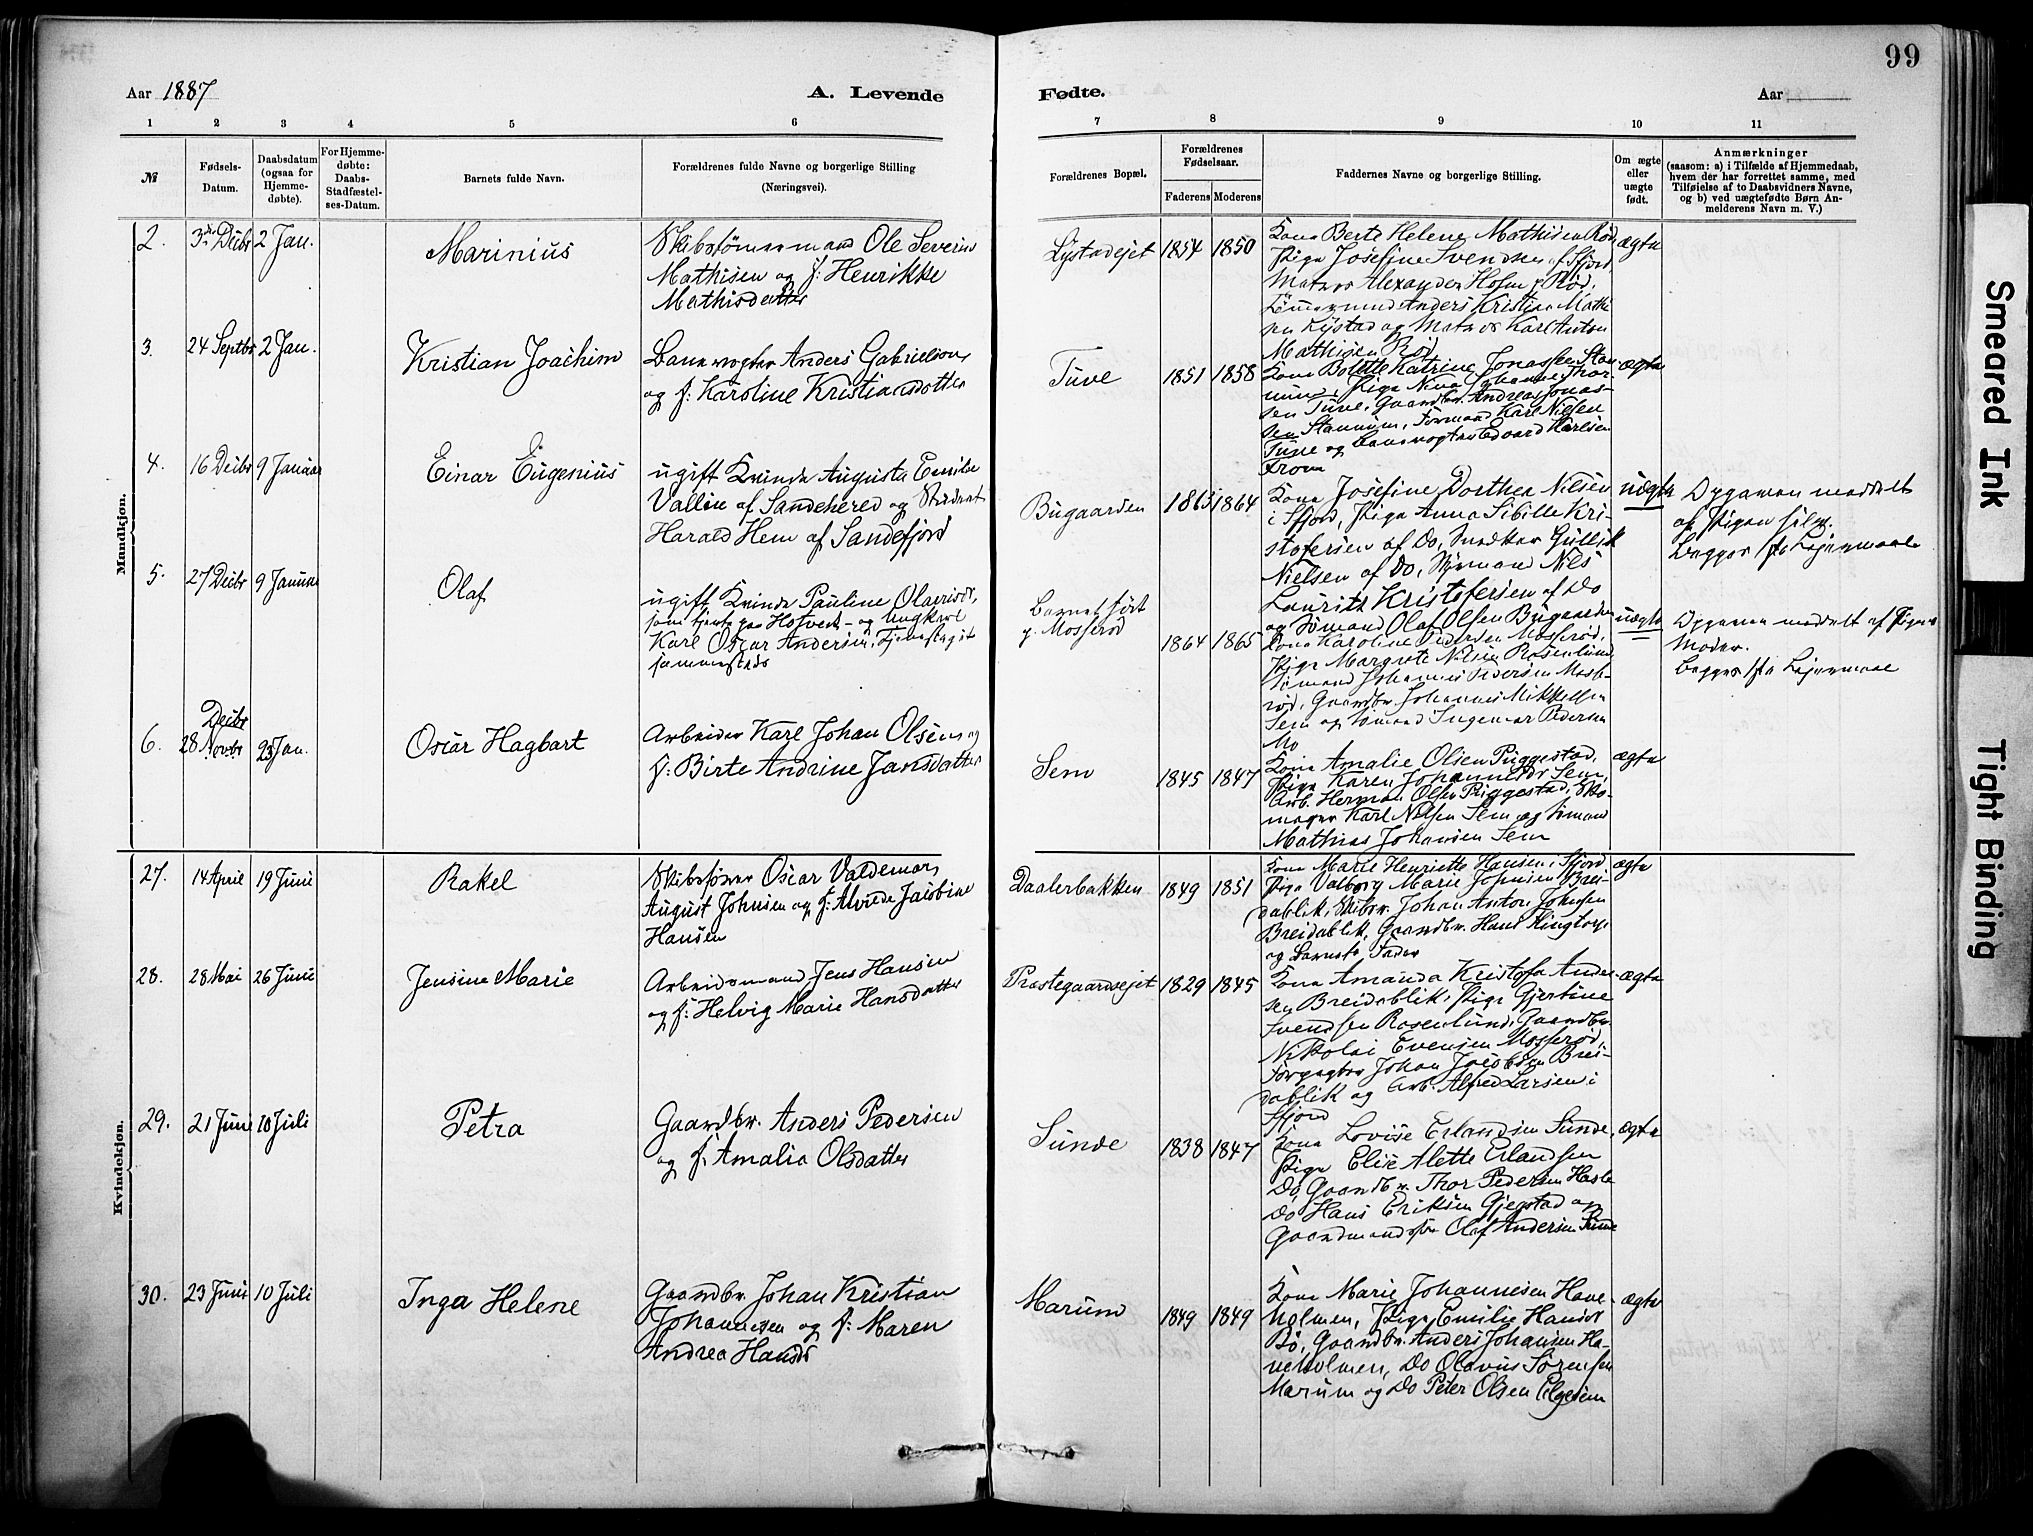 99
Aar 1887
A. Levende
Fødte.
Aar
1 2 3 4 5 6
7 8 9 10 11
№
Fødsels-
Datum.
Daabsdatum
(ogsaa for
Hjemme-
døbte).
For Hjemme-
døbte:
Daabs-
Stadfæstel-
ses-Datum.
Barnets fulde Navn.
Forældrenes fulde Navne og borgerlige Stilling
(Næringsvei).
Forældrenes Bopæl.
Forældrenes
Fødselsaar.
Faderens
Moderens
Faddernes Navne og borgerlige Stilling.
Om ægte
eller
uægte
født.
Anmærkninger
(saasom: a) i Tilfælde af Hjemmedaab,
hvem der har forrettet samme, med
Tilføielse af to Daabsvidners Navne,
og b) ved uægtefødte Børn An-
melderens Navn m. V.)
Mandkjøn.
2. 3die Decbr 2 Jan. Marinius
Skibstømmermand Ole Severin
Mathisen og f: Henrikke
Mathisdatter
Lystadejet 1854 1850
Kona Berte Helene Mathisen Rød
Pige Josefine Svendsen af Sfjord,
Matros Alexander Holm f Rød,
Tømmermand Anders Kristian Mathi
sen Lystad og Matros Karl Anton
Mathisen Rød
ægte
3. 24 Septbr 2 Jan. Kristian Joachim
Banevogter Anders Gabrielsen
og f: Karoline Kristiansdatter
Tuve 1851 1858
Kona Bolette Katrine Jonassen Stan-
num, Pige Nina Johanne Thor-
sen Tuve, Gaardbr. Andreas Jonas-
sen Stannum, Formand Karl Nielsen
Tuve og Banevogter Edvard Karlsen
Krom
ægte
4. 16 Decbr 9 Januar Einar Eugenius
ugift Kvinde Augusta Emilie
Vallin af Sandeherred og Student
Harald Hem af Sandefjord
Bugaarden 1863 1864
Kona Josefine Dorthea Nilsen
i Sfjord, Pige Anna Sibille Kri-
stofersen af Do, Snedker Gullik
Nielsen af Do, Styrmand Nils
Laurits Kristofersen af Do
og Sømand Olaf Olsen Bugaarden
uægte
Opgaven meddelt
af Pigen selv.
Begges 1ste Leiermaal
5. 27 Decbr 9 Januar Olaf
ugift Kvinde Pauline Olavisdr,
som tjente paa Hotvedt- og Ungkarl
Karl Oscar Andersen,
sammesteds
Barnet født
p. Mosserød
1864 1865
Kona Karoline Pedersen Mosserød,
Pige Margrete Nilsen Rosenlund
Sømand Johannes Pedersen Mosse-
rød, Gaardbr. Johannes Mikkelsen
Sem og Sømand Ingemar Pedersen
Mo
uægte
Opgaven meddelt af Pigens
Moder.
Begges 1ste Leiermaal
6. 28 Novbr Decbr 23 Jan. Oscar Hagbart
Arbeider Karl Johan Olsen og
f: Birte Andrine Jansdatter
Sem 1845 1847
Kona Amalie Olsen Puggestad,
Pige Karen Johannesdr Sem,
Arb. Herman Olsen Puggestad, Sko-
mager Karl Nilsen Sem og Sømand
Mathias Johansen Sem
ægte
Kvindekjøn.
27. 14 April 19 Juni Rakel
Skibsfører Oscar Valdemar,
August Johnsen og f: Alvilde Jacobine
Hansen
Daalerbakken 1849 1851
Kona Marie Henriette Hansen i Sfjord,
Pige Valborg Marie Johnsen Brei-
dablik, Skibsr. Johan Anton Johnsen
Breidablik, Gaardbr. Hans Ringtorp
og Barnets Fader
ægte
28. 28 Mai 26 Juni Jensine Marie
Arbeidsmand Jens Hansen
og f: Helvig Marie Hansdatter
Præstegaardsejet 1829 1845
Kona Amanda Kristofa Ander-
sen Breidablik, Pige Gjertine
Svendsen Rosenlund, Gaardbr.
Nikolai Evensen Mosserød,
Forpagter Johan Jacobsen Brei-
dablik og Arb. Alfred Larsen i
Sfjord
ægte
29. 21 Juni 10 Juli Petra
Gaardbr. Anders Pedersen
og f: Amalia Olsdatter
Sunde 1838 1847
Kona Lovise Erlandsen Sunde,
Pige Elise Alette Erlandsen
Do, Gaardbr. Thor Pedersen Hasle
Do Hans Eriksen Gjegstad og
Gaardmandssøn Olaf Andersen Sunde
ægte
30. 23 Juni 10 Juli Inga Helene
Gaardbr. Johan Kristian
Johannesen og f: Maren
Andrea Hansdr
Marum 1849 1849
Kona Marie Johannesen Have-
holmen, Pige Emilie Hansdr
Bø, Gaardbr. Anders Johansen Ha-
veholmen, Do Olavus Sørensen
Marum og Do Peter Olsen Elgesem
ægte
Smeared Ink
Tight Binding